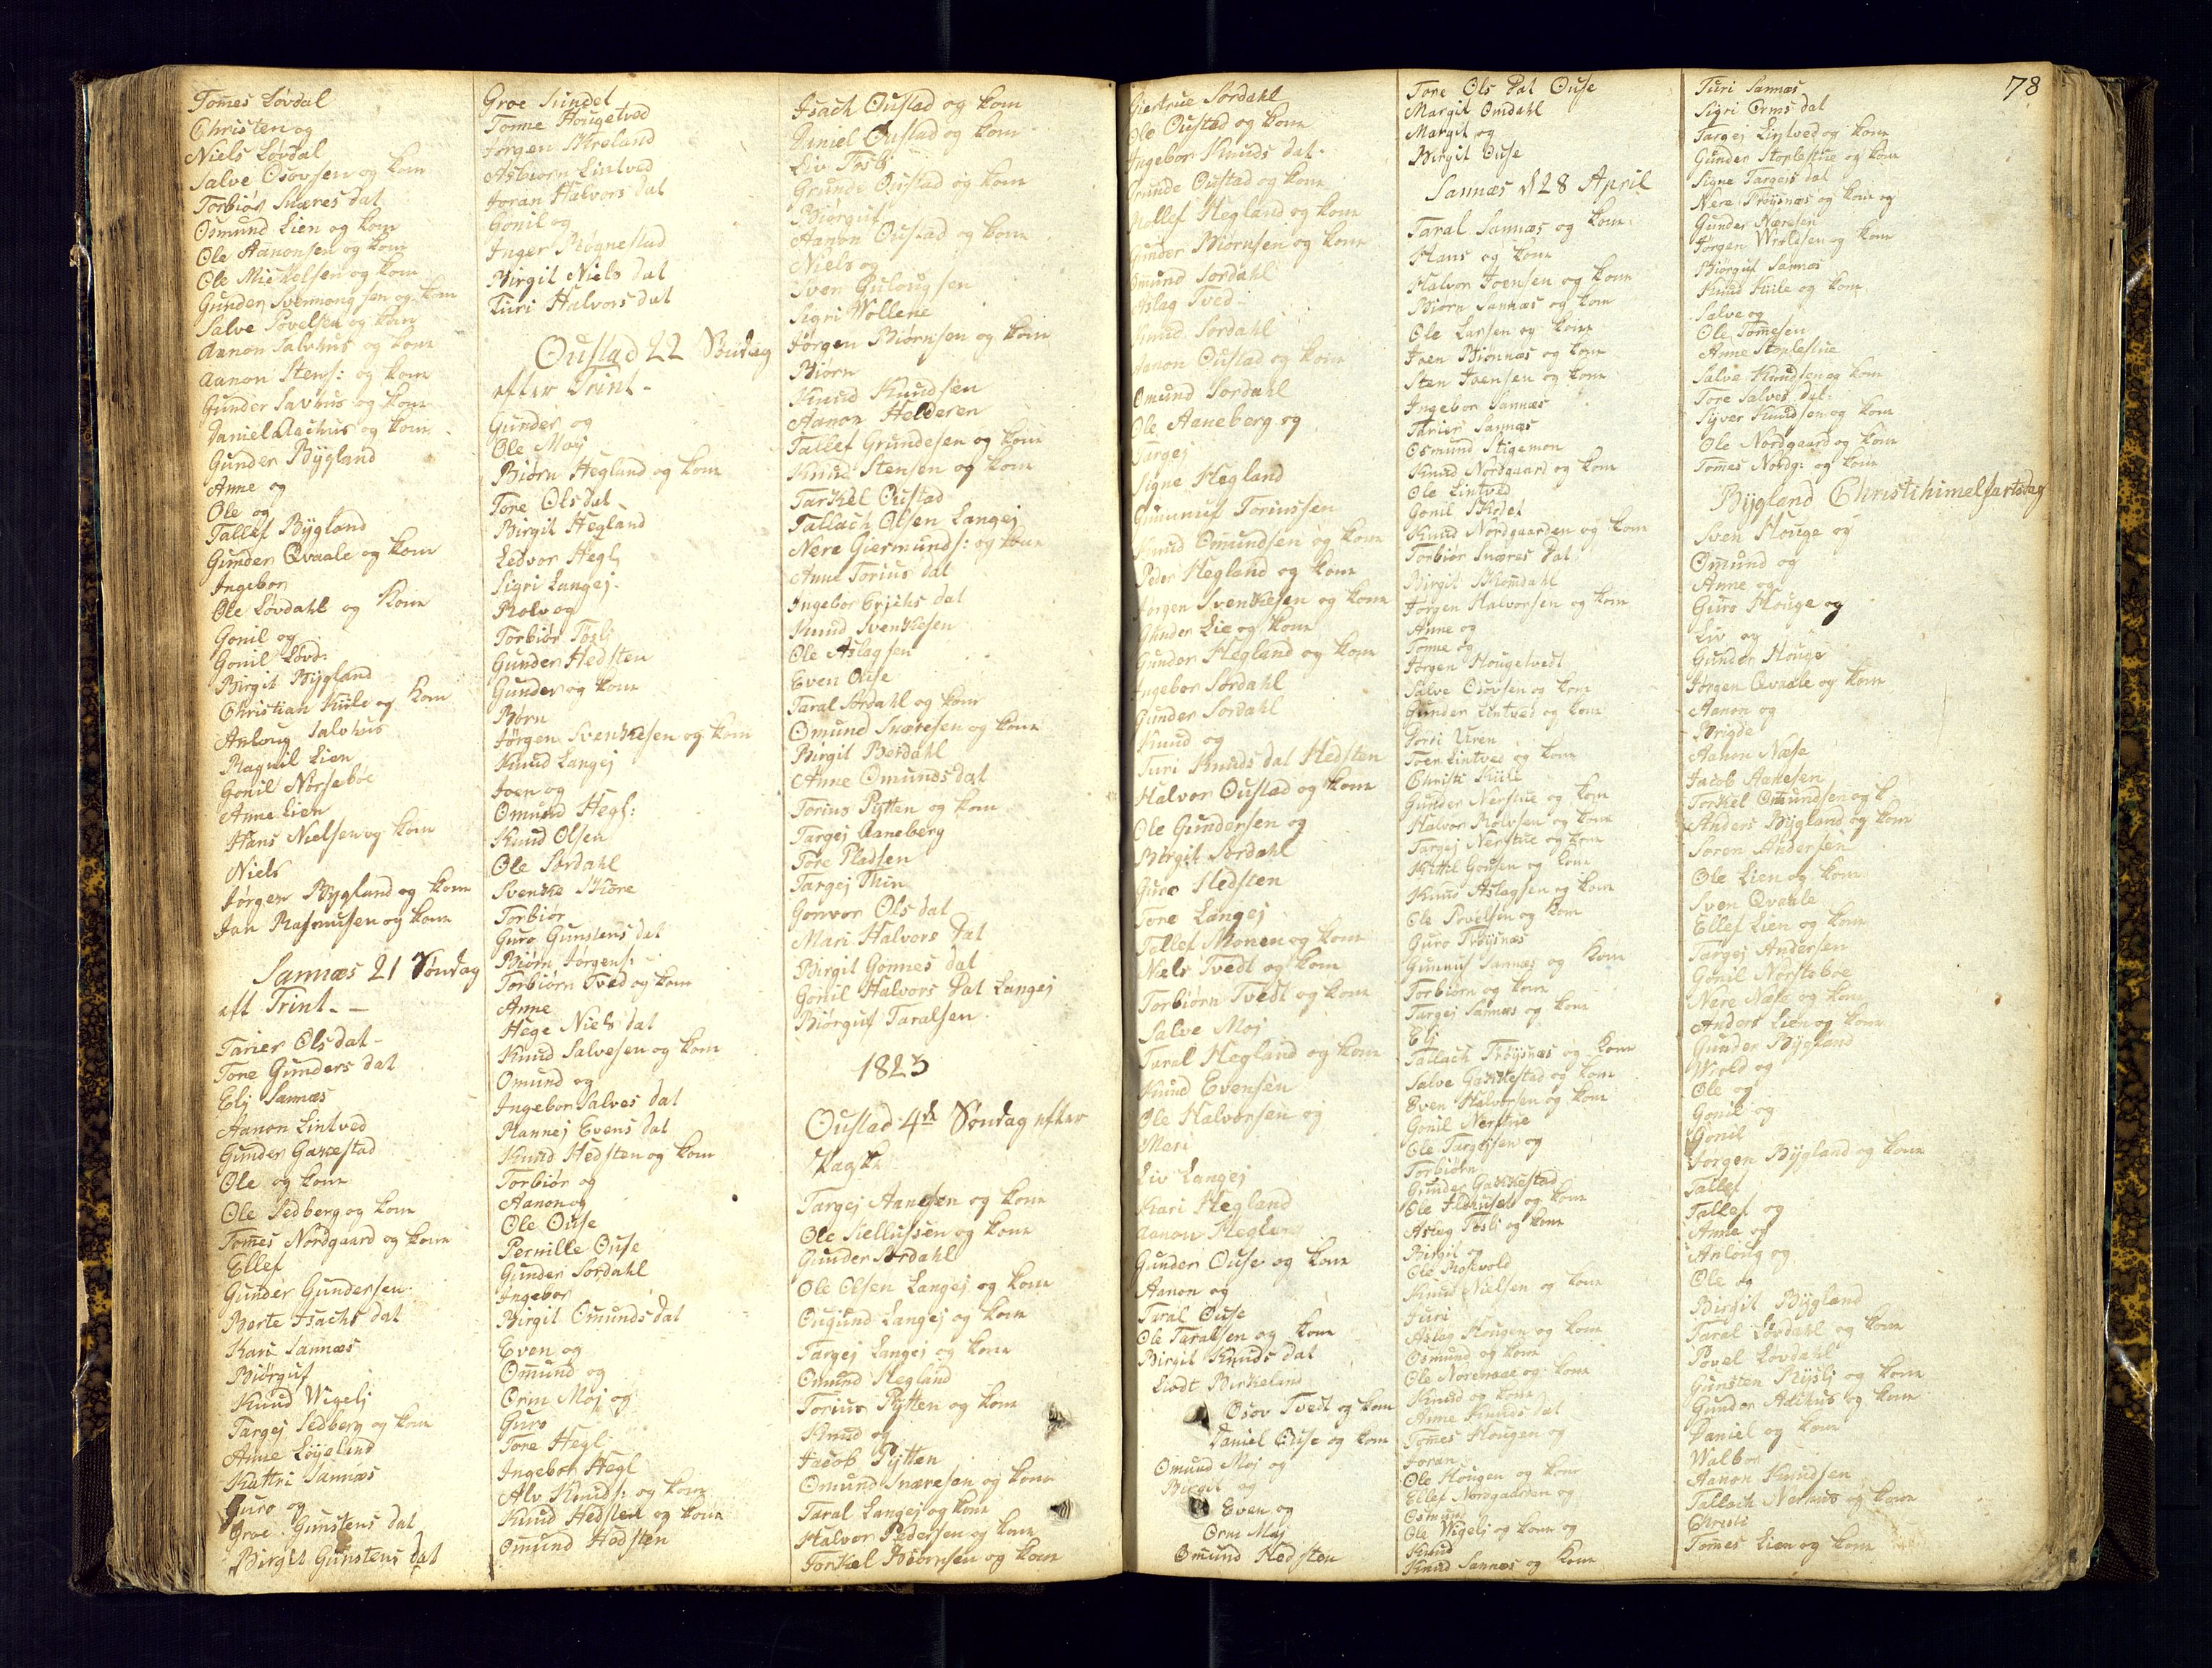 Tom̄es Løvdal
Christen og
Niels Løvdal
Salve Osovsen og kone
Torbiør Snæres dat
Osmund Lien og kone
Ole Aanonsen og kone
Ole Mickelsen og kone
Gunder Svennong sen og kone
Salve Povelsen og kone
Aanon Salvhus og kone
Aanon Stens: og kone
Gunder Savhus og kone
Daniel Aachus og kone
Gunder Bÿgland
Anne og
Ole og
Tallef Bÿgland
Gunder Qvaale og kone
Ingebor
Ole Løvdahl og kone
Gonil og
Gonil Løvd:
Birgit Bÿgland
Christian Kiile og kone
Anlong Salvhus
Ragnil Lien
Gonil Norsebøe
Anne Lien
Hans Nielsen og kone
Niels
Jørgen Bÿgland og kone
Jan Rasmusen og kone
Sannæs 21 Søndag
eft Trint. –
Tarier Ols dat
Tone Gunders dat
Elj Sannæs
Aanon Lintved
Gunder Gakkestad
Ole og kone
Ole Sedberg og kone
Tom̄es Nordgaard og kone
Ellef
Gunder Gundersen
Berte Isachs dat
Kari Sannæs
Biørguf
Knud Wigelj
Targej Sedberg og kone
Anne Løÿgland
Kattri Sannæs
Guro og
Groe Gunstens dat
Birgit Gunstens dat
Groe Sundet
Tonne Hougetved
Jørgen Skreland
Asbiørn Lintved
Joran Halvors dat
Gonil og
Inger Røgnestad
Birgit Niels dat
Turi Halvors dat
Oustad 22 Søndag
efter Trint –
Gunder og
Ole Moj
Biørn Hegland og kone
Tore Ols dat
Birgit Hegland
Ledvor Hegl
Sigri Langej
Rolv og
Torbiør Tøsli
Gunder Hedsten
Gunder og kone
Børn
Jørgen Svenkesen og kone
Knud Langej
Joen og
Omund Hegl:
Knud Olsen
Ole Sordahl
Svenke Skore
Torbiør
Guro Gunstens dat
Biørn Jørgens:
Torbiørn Tved og kone
Anne
Hege Niels dat
Knud Salvesen og kone
Omund og
Ingebor Salves dat
Mannej Evens dat
Knud Hedsten og kone
Torbiør og
Aanon og
Ole Ouse
Pernille Ouse
Gunder Sordahl
Ingebor
Birgit Omunds dat
Even og
Om̄und og
Orm Moj og
Guro
Tore Hegl
Ingebor Hegl
Alv Knuds: og kone
Knud Hedsten og kone
Omund Hedsten
Isach Oustad og kone
Daniel Oustad og kone
Liv Tøsli
Grunde Oustad og kone
Biørguf
Aanon Oustad og kone
Niels og
Sven Guloug sen
Sigri Wollene
Jørgen Biørnsen og kone
Biørn
Knud Knudsen
Aanon Helderen
Tallef Grundesen og kone
Knud Stensen og kone
Tarkel Oustad
Tallach Olsen Langej
Nere Giermunds: og kone
Anne Torius dat
Ingebor Erichs dat
Knud Svenkesen
Ole Aslagsen
Even Ouse
Taral Sordahl og kone
Omund Snæresen og kone
Birgit Berdahl
Anne Omunds dat
Torius Pÿtten og kone
Targej Aaneberg
Tore Pladsen
Targej Thin
Gonvor Ols dat
Mari Halvors dat
Birgit Gonnes dat
Gonil Halvors dat Langej
Biørguf Taralsen
1823
Oustad 4de Søndag efter
Paaske
Targej Aanesen og kone
Ole Kellussen og kone
Gunder Sordahl
Ole Olsen Langej og kone
Ougund Langej og kone
Targej Langej og kone
Omund Hegland
Torius Pÿtten og kone
Knud og
Jacob Pÿtten
Omund Snæresen og kone
Taral Langej og kone
Halvor Pedersen og kone
Torkel Biørnsen og kone
78
Giertrue Sordahl
Ole Oustad og kone
Ingebor Knuds dat
Grunde Oustad og kone
Rollef Hegland og kone
Gunder Biørnsen og kone
Omund Sordahl
Aslag Tved
Knud Sordahl
Aanon Oustad og kone
Omund Sordahl
Ole Aaneberg og
Targej
Signe Hegland
Gunnuf Toriussen
Knud Om̄undsen og kone
Peder Hegland og kone
Jørgen Svenkesen og kone
Gunder Lie og kone
Gunder Hegland og kone
Ingebor Sordahl
Gunder Sordahl
Knud og
Turi Knuds dat Hedsten
Halvor Oustad og kone
Ole Gundersen og
Birgit Sordahl
Guro Hedsten
Tore Langej
Tellef Monen og kone
Niels Tvedt og kone
Torbiørn Tvedt og kone
Salve Moj
Taral Hegland og kone
Knud Evensen
Ole Halvorsen og
Mari
Liv Langej
Kari Hegland
Aanon Hegland
Gunder Ouse og kone
Aanon og
Taral Ouse
Ole Taralsen og kone
Birgit Knuds dat
Lisdt Birkeland
Osov Tvedt og kone
Daniel Ouse og kone
Omund Moj og
Birgit og
Even og
Orm Moj
Omund Hedsten
Tore Ols Dat Ouse
Margit Omdahl
Margit og
Birgit Ouse
Sannæs d 28 April
Taral Sannæs og kone
Hans og kone
Halvor Joensen og kone
Biørn Sannæs og kone
Ole Larsen og kone
Joen Biønnæs og kone
Sten Joensen og kone
Ingebor Sannæs
Tarier Sannæs
Osmund Stigemon
Knud Nordgaard og kone
Ole Lintved
Gonil Skodet
Knud Nordgaarden og kone
Torbiør Snæres dat
Birgit Skomdahl
Jørgen Halvorsen og kone
Anne og
Tonne og
Jørgen Hougetvedt
Salve Osovsen og kone
Gunder Lintved og kone
Joren Lintved og kone
Christi Kiile
Gunder Nerstue og kone
Halvor Rolvsen og kone
Targej Nerstue og kone
Kittil Gonsen og kone
Knud Aslagsen og kone
Ole Povelsen og kone
Guro Frøÿsnæs
Gunnuf Sannæs og kone
Torbiørn og kone
Targej Sannæs og kone
Elj
Tallach Frøÿsnæs og kone
Salve Gakkestad og kone
Even Halvorsen og kone
Gonil Nerstue
Ole Targejsen og
Torbiørn
Gunder Gakkestad
Aslag Tøsli og kone
Birgit og
Ole Rosevold
Knud Nielsen og kone
Turi
Aslag Hougen og kone
Osmund og kone
Knud og kone
Anne Knuds dat
Tom̄es Hougen og
Joran
Ole Hougen og kone
Ellef Nordgaarden og
Osmund
Ole Wigelj og kone og
Knud
Knud Sannæs og kone
Turi Sannæs
Sigri Orms dat
Targej Lintved og kone
Gunder Stoplestue og kone
Signe Targejs dat
Nere Frøÿsnæs og kone og
Gunder Næresen
Jørgen Wroldsen og kone
Biørguf Sannæs
Knud Kiile og kone
Salve og
Ole Tom̄esen
Anne Stoplestue
Salve Knudsen og kone
Tore Salves dat:
Syver Knudsen og kone
Ole Nordgaard og kone
Tom̄es Nordg: og kone
Bÿgland Christi himelfartsdag
Sven Houge og
Om̄und og
Anne og
Guro Houge og
Liv og
Gunder Houge
Jørgen Qvaale og kone
Aanon og
Brigde
Aanon Næse
Jacob Aanesen
Torkel Om̄undsen og k
Anders Bÿgland og kone
Søren Andersen
Ole Lien og kone
Sven Qvaale
Ellef Lien og kone
Targej Andersen
Gonil Norstebøe
Nere Næse og kone
Anders Lien og kone
Gunder Bÿgland
Wrold og
Ole og
Gonil og
Gonil
Jørgen Bÿgland og kone
Tallef
Tallef og
Anne og
Anloug og
Ole og
Birgit Bÿgland
Taral Løvdahl og kone
Povel Løvdahl
Gunsten Rÿslj og kone
Gunder Aakhus og kone
Daniel og kone
Walbor
Aanon Knudsen
Tallach Nesmoe og kone
Christi
Tom̄es Lien og kone